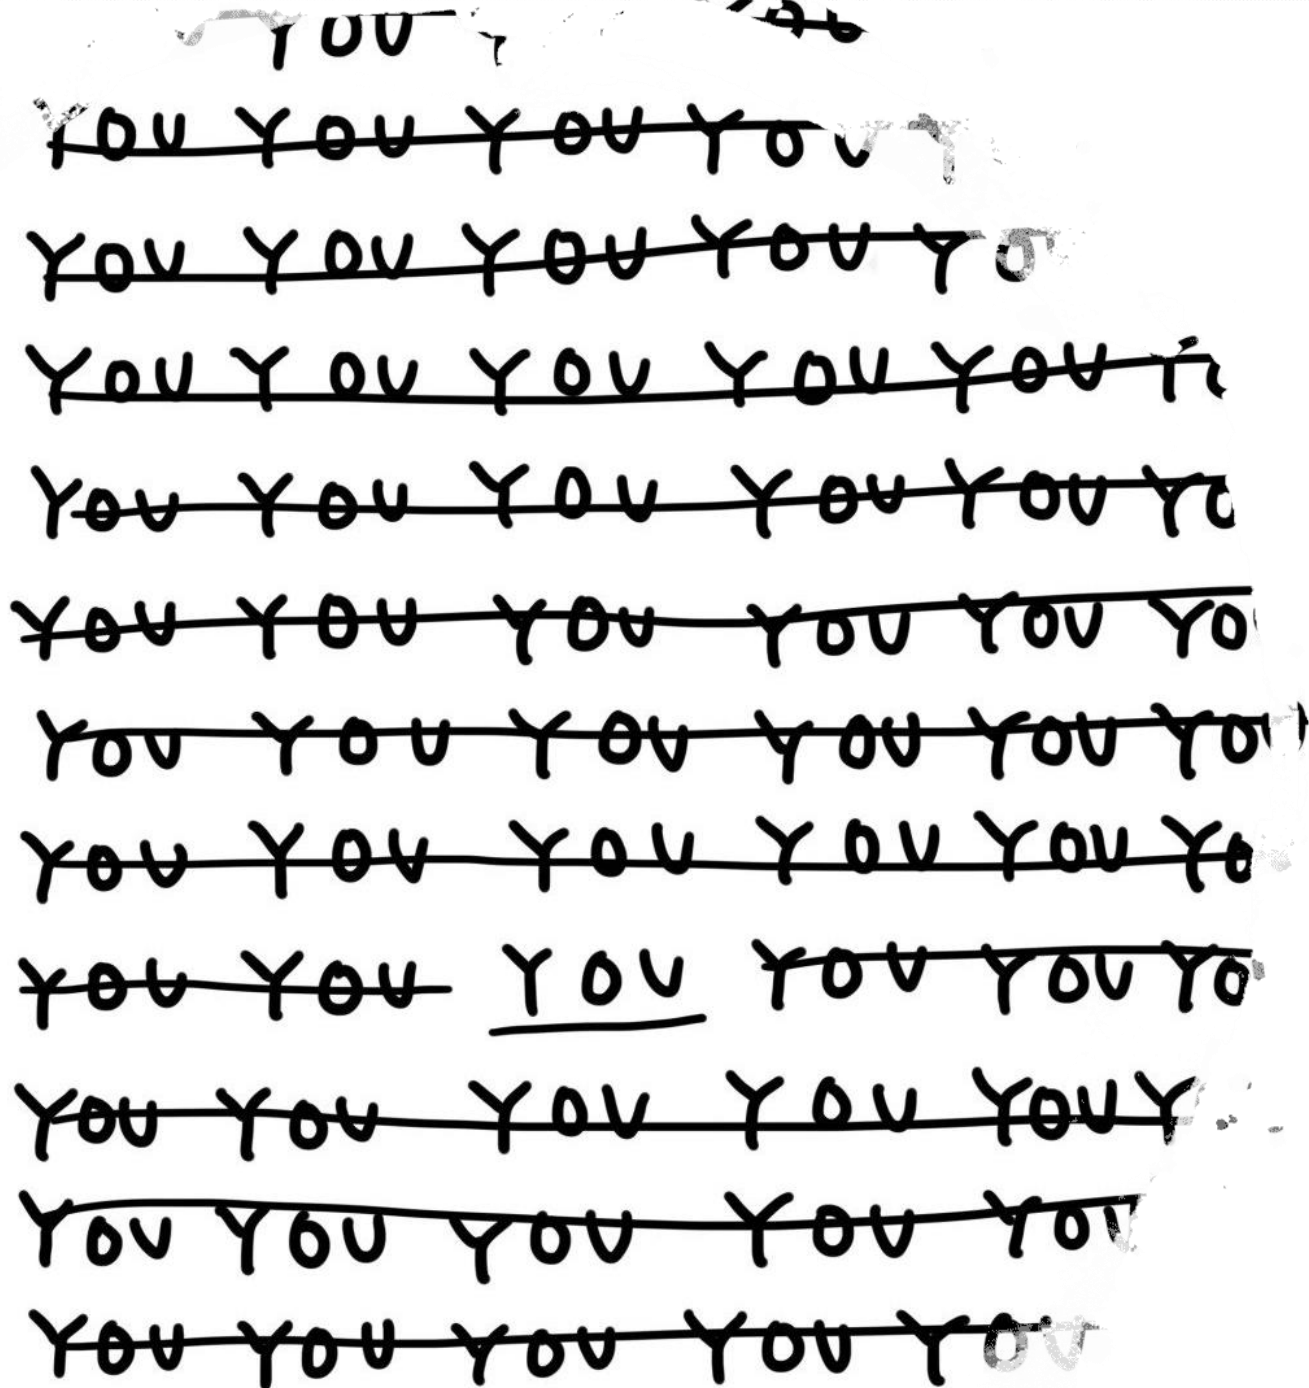 YOU
YOU YOU YOU YOU Y
YOU YOU YOU YOU YO
YOU YOU YOU YOU YOU
YOU YOU YOU YOU YOU YO
YOU YOU YOU YOU YOU YO
YOU YOU YOU YOU YOU YO
YOU YOU YOU YOU YOU YO
YOU YOU YOU YOU YOU YO
YOU YOU YOU YOU YOU Y
YOU YOU YOU YOU YOU
YOU YOU YOU YOU YOU